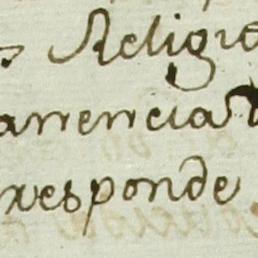 Religio
arrencia
responde